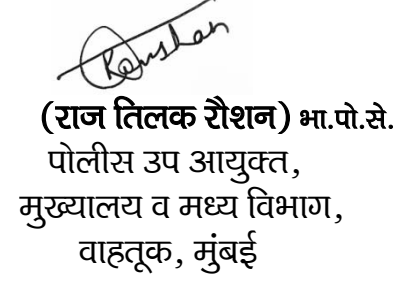 Raushan
(राज तिलक रौशन) भा.पो.से.
पोलीस उप आयुक्त,
मुख्यालय व मध्य विभाग,
वाहतूक, मुंबई